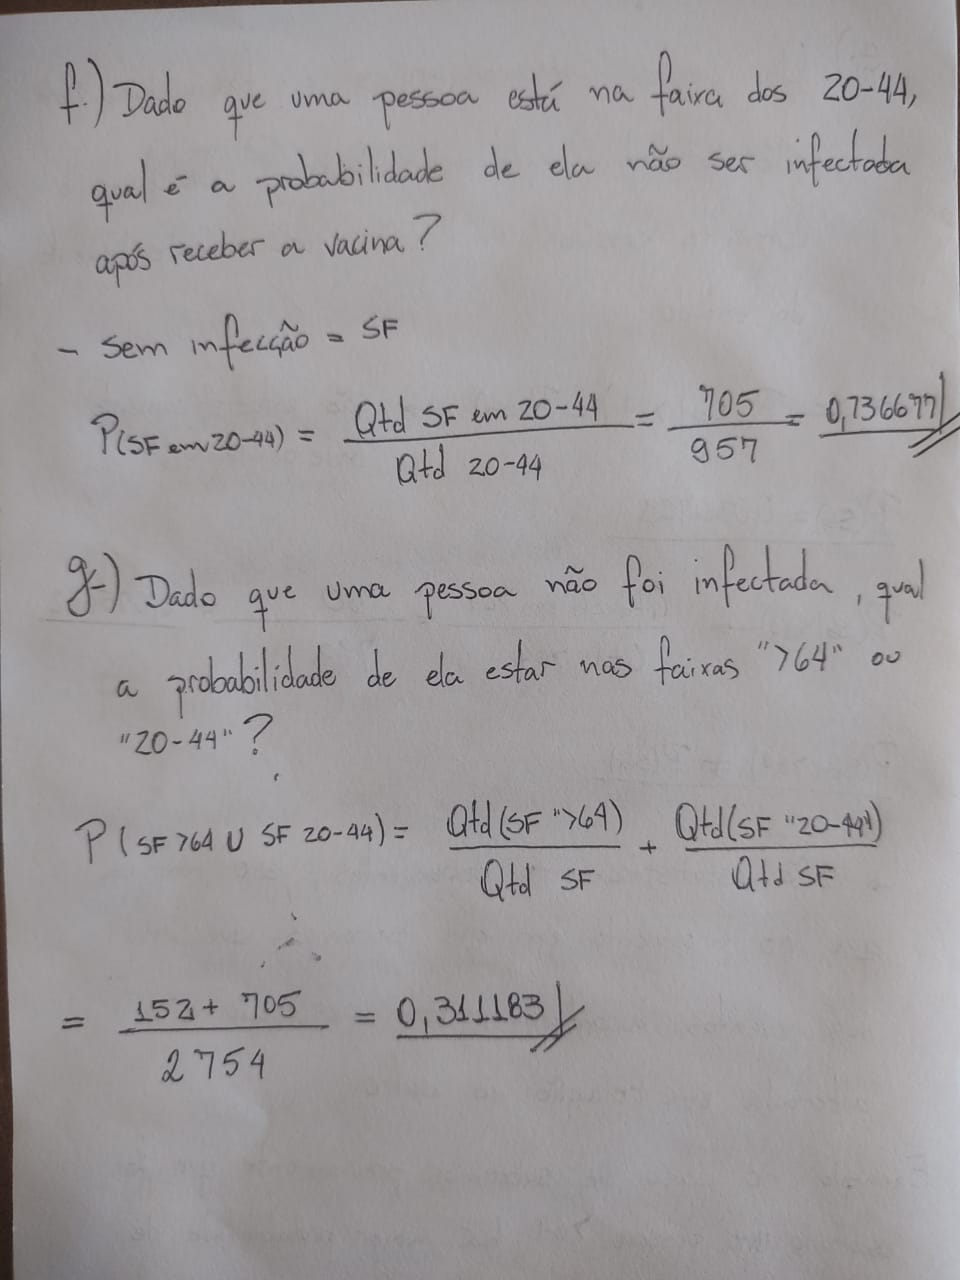 f.) Dado que uma pessoa está na faixa dos 20-44,
qual é a probabilidade de ela não ser infectada
após receber a vacina?
- Sem infecção = SF
P(SF em 20-44) = Qtd SF em 20-44 / Qtd 20-44 = 705 / 957 = 0,736677
g-) Dado que uma pessoa não foi infectada, qual
a probabilidade de ela estar nas faixas ">64" ou
"20-44"?
P(SF >64 U SF 20-44) = Qtd(SF ">64) / Qtd SF + Qtd(SF "20-44") / Qtd SF
= 152 + 705 / 2754 = 0,311183